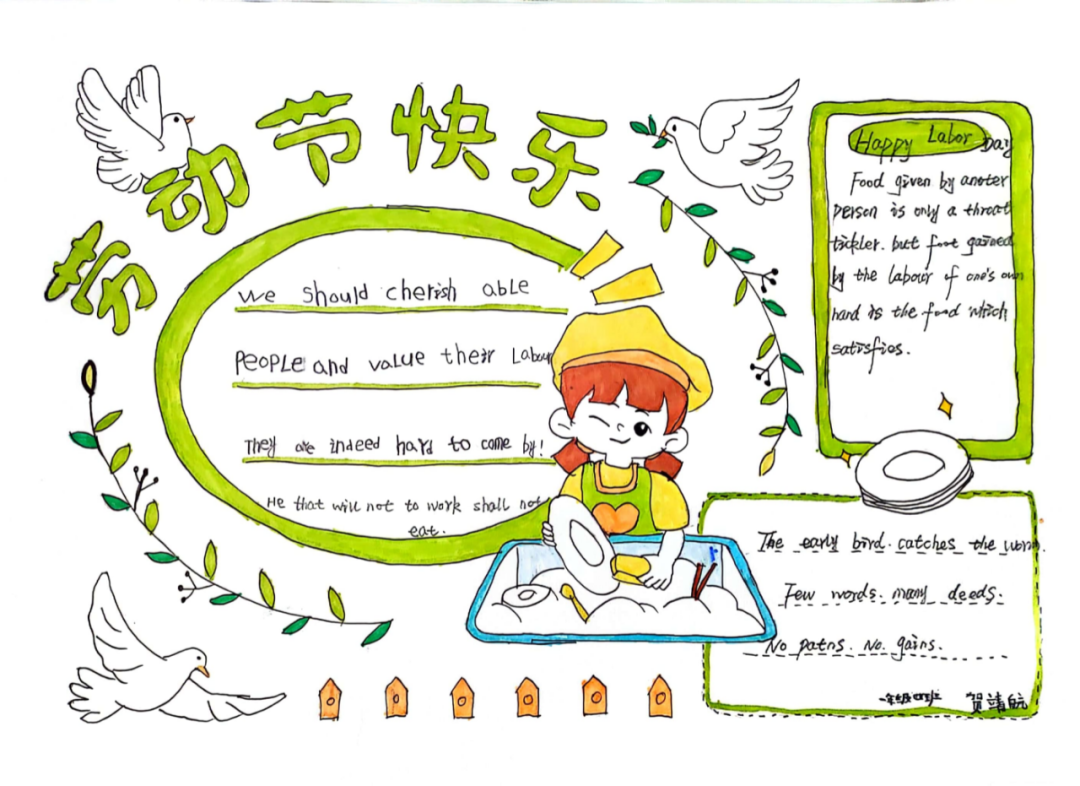 劳动节快乐
we should cherish able
PEOPLE and value their Labour
They are indeed hard to come by!
He that will not to work shall not
eat.
Happy Labor Day
Food given by anoter
person is only a throat
tickler. but foot gained
by the labour of one's own
hand is the food which
satisfies.
The early bird. catches the worm.
Few words. many deeds.
No patns. No. gains.
一年级四班 贺靖航